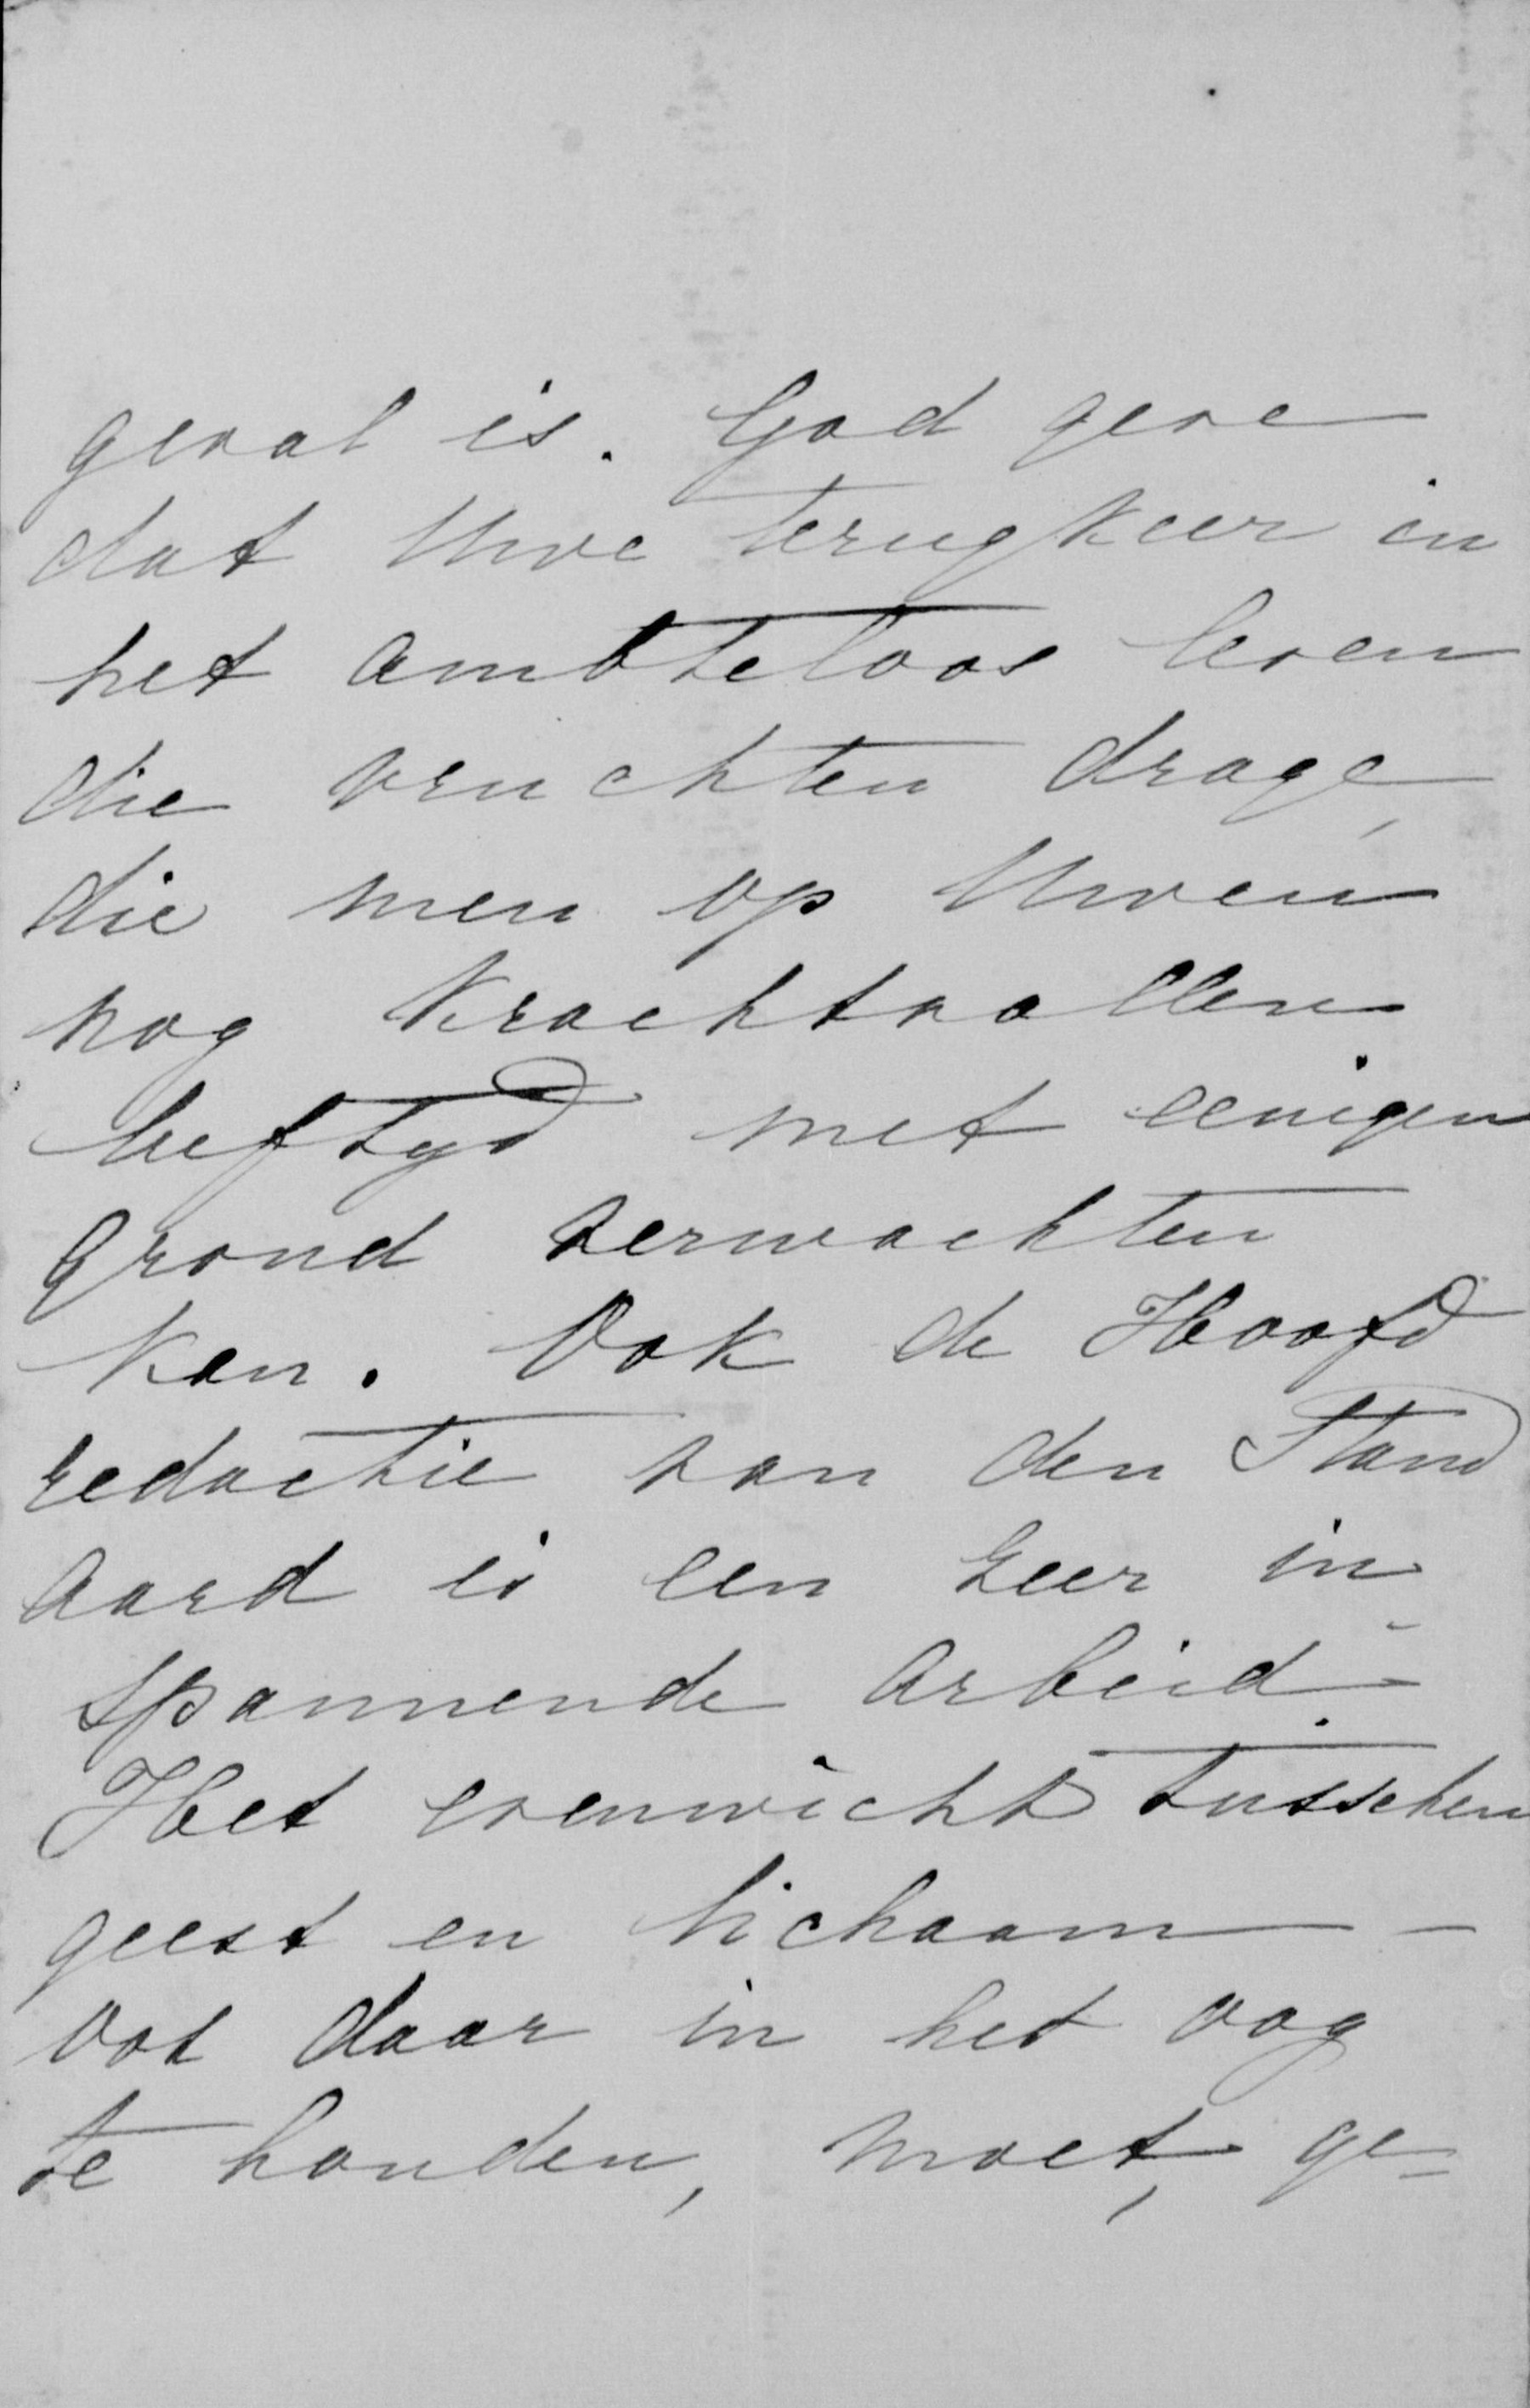 geval is. God geve
dat Uwe terugkeer in
het ambteloos leven
die vruchten drage,
die men op Uwen
nog krachtvollen
leeftyd met eenigen
grond verwachten
kan. Ook de Hoofd
redactie van den Stand
aard is een zeer in-
spannende arbeid.
Het evenwicht tusschen
geest en lichaam –
ook daar in het oog
te houden, moet, ge=